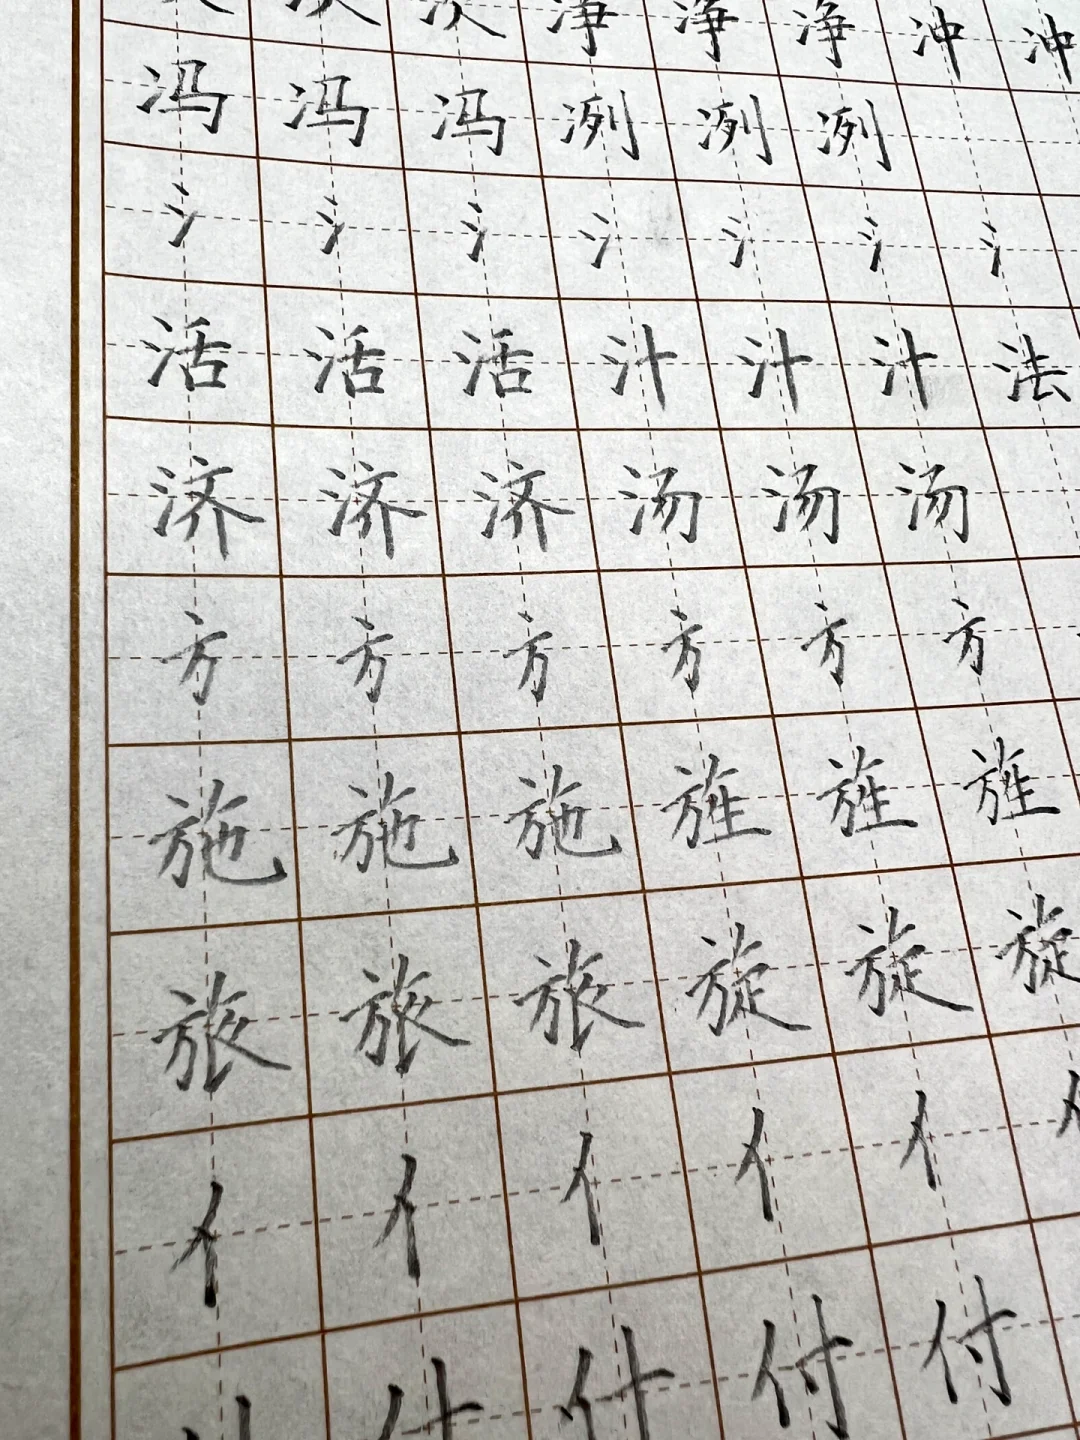 净 净 净 冲 冲
冯 冯 冯 冽 冽 冽
氵 氵 氵 氵 氵 氵 氵
活 活 活 汁 汁 汁 法
济 济 济 汤 汤 汤
方 方 方 方 方 方
施 施 施 旌 旌 旌
旅 旅 旅 旋 旋 旋
亻 亻 亻 亻 亻 亻
付 付 付 付